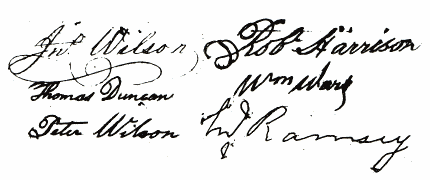 Jno Wilson
Thomas Duncan
Peter Wilson
Robt Harrison
Wm Ward
Ramsey